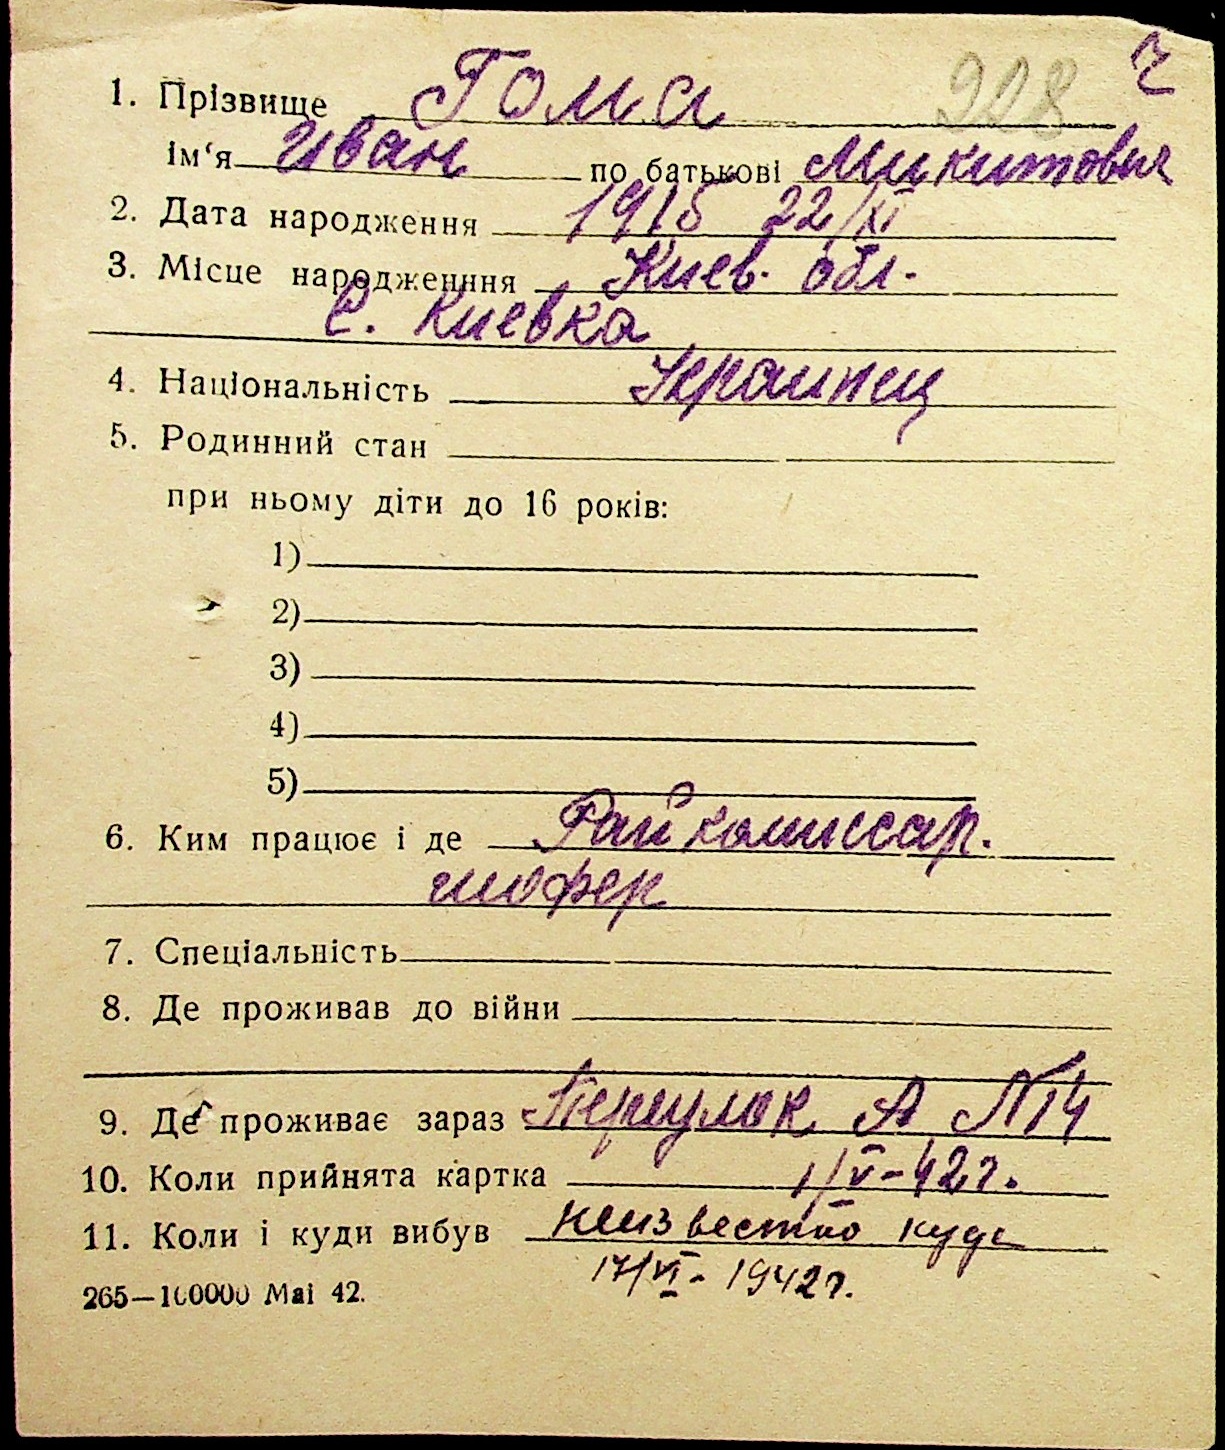 ч
928
1. Прізвище Гома
Ім‘я Иван по батькові Микитович
2. Дата народження 1915 22/XI
3. Місце народженння Киев. обл.
с. Киевка
4. Національність Украинец
5. Родинний стан
при ньому діти до 16 років:
1)
2)
3)
4)
5)
6. Ким працює і де Райкомиссар.
шофер
7. Спеціальність
8. Де проживав до війни
9. Де проживає зараз Переулок А N14
10. Коли прийнята картка 1/V-42г.
11. Коли і куди вибув неизвестно куда
17/VI - 1942г.
265—100000 Маі 42.